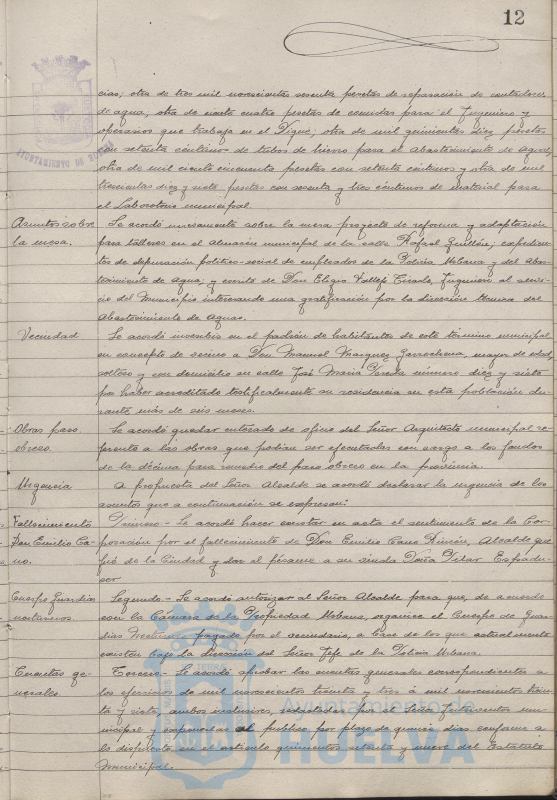 12
cias; otra de tres mil novecientas sesenta pesetas de reparación de contadores
de agua, otra de ciento cuatro pesetas de comidas para el Ingeniero y
operarios que trabaja en el Dique; otra de mil quinientas diez pesetas
con setenta céntimos de tubos de hierro para el Abastecimiento de Aguas,
otra de mil ciento cincuenta pesetas con setenta céntimos y otra de mil
trescientas diez y siete pesetas con sesenta y tres céntimos de material para
el Laboratorio municipal.
Asuntos sobre la mesa.
Se acordó nuevamente sobre la mesa proyecto de reforma y adaptación
para talleres en el Almacén municipal de la calle Rafael Guillén; expedien-
tes de depuración político-social de empleados de la Policía Urbana y del Abas-
tecimiento de Agua; y escrito de Don Eligio Vallejo Tirado, Ingeniero al servi-
cio del Municipio interesando una gratificación por la dirección técnica del
Abastecimiento de Aguas.
Vecindad
Se acordó inscribir en el padrón de habitantes de este término municipal
en concepto de vecino a Don Manuel Marquez, mayor de edad,
soltero y con domicilio en calle José María Pereda número diez y siete
por haber acreditado testificalmente su residencia en esta población du-
rante más de seis meses.
Obras paro obrero.
Se acordó quedar enterado de oficio del Señor Arquitecto municipal re-
ferente a las obras que podían ser ejecutadas con cargo a los fondos
de la décima para remedio del paro obrero en la provincia.
Urgencia
A propuesta del Señor Alcalde se acordó declarar la urgencia de los
asuntos que a continuación se expresan:
Fallecimiento Don Emilio Cano.
Primero.- Se acordó hacer constar en acta el sentimiento de la Cor-
poración por el fallecimiento de Don Emilio Cano Rincón, Alcalde que
fué de la Ciudad y dar el pésame a su viuda Doña Pilar
Cuerpo Guardias nocturnos.
Segundo.- Se acordó autorizar al Señor Alcalde para que, de acuerdo
con la Cámara de la Propiedad Urbana, organice el Cuerpo de Guar-
dias Nocturnos, pagado por el vecindario, a base de los que actualmente
existen bajo la dirección del Señor Jefe de la Policía Urbana.
Cuentas generales.
Tercero.- Se acordó aprobar las cuentas generales correspondientes a
los ejercicios de mil novecientos treinta y tres á mil novecientos trein-
ta y siete, ambos inclusives, redactadas por el Señor Interventor mu-
nicipal y exponerlas al público por plazo de quince días conforme a
lo dispuesto en el artículo quinientos setenta y nueve del Estatuto
Municipal.
AYUNTAMIENTO DE HUELVA
Ayuntamiento de
HUELVA